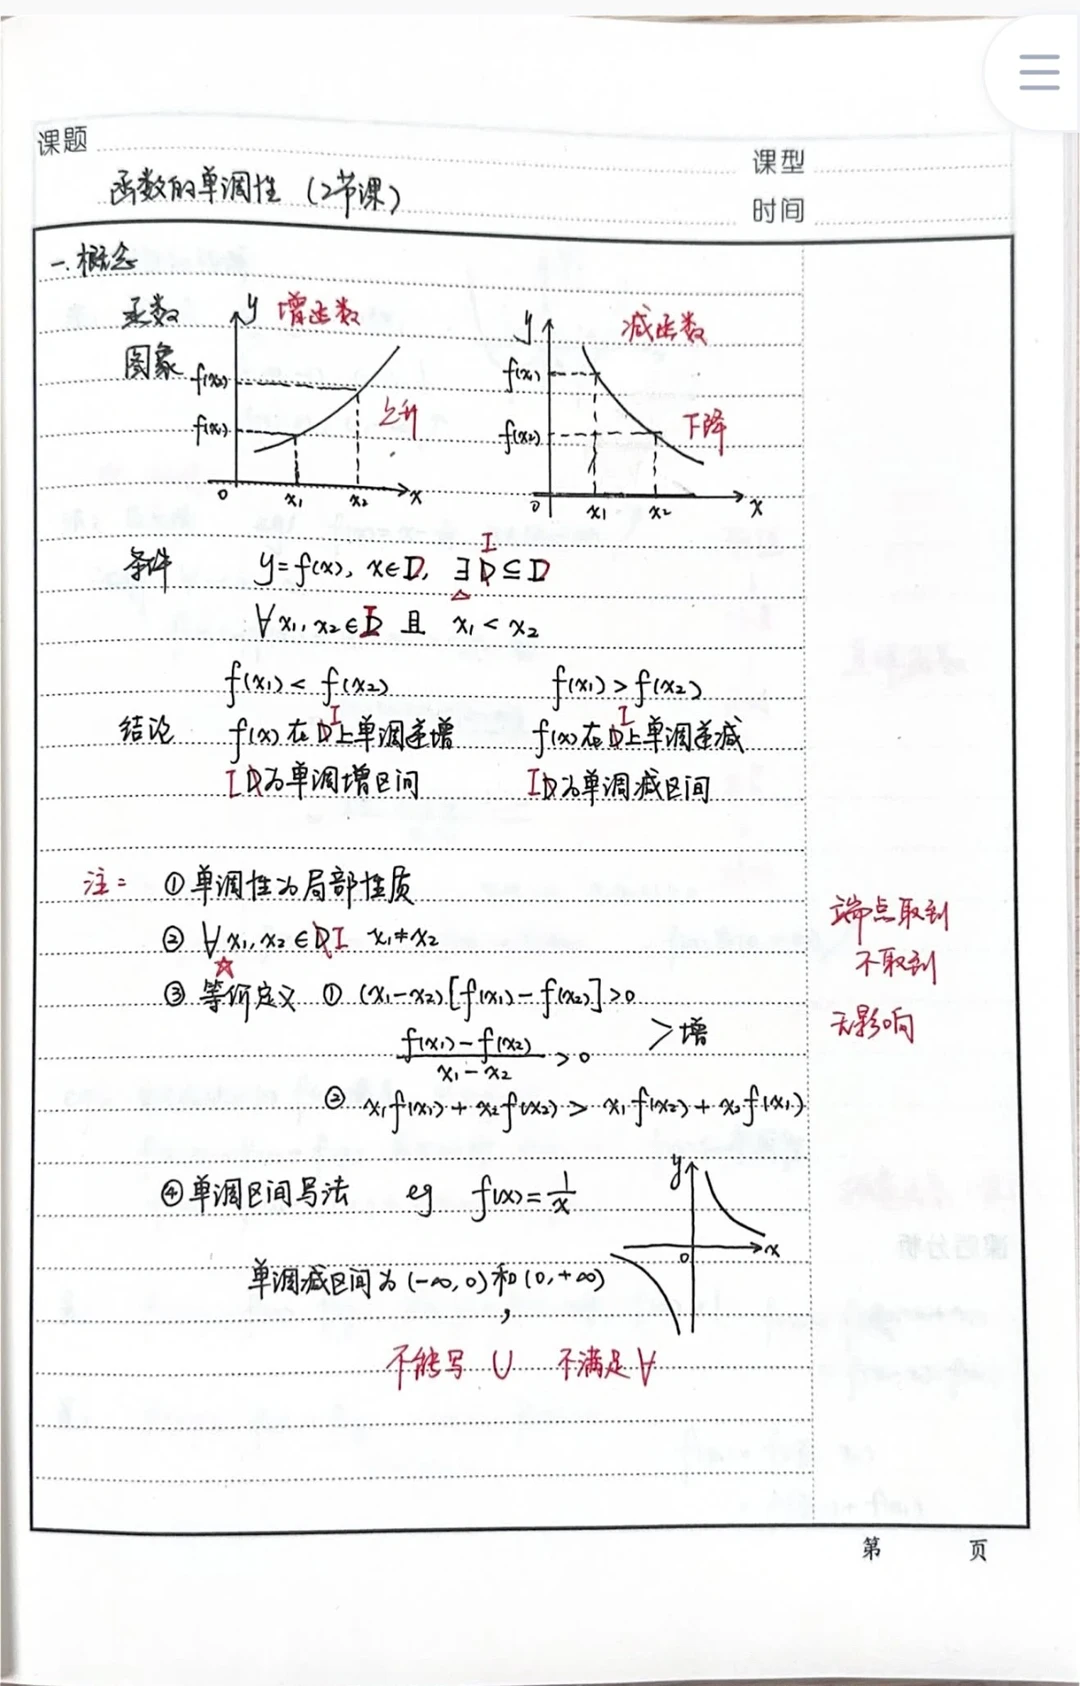 课题
课型
函数的单调性（2节课）
时间
一.概念
函数
图象
y 增函数
f(x2)
f(x1)
上升
0 x1 x2 x
y 减函数
f(x1)
f(x2)
下降
0 x1 x2 x
条件 y=f(x), x∈D, ∃ I ⊆ D
∀x1,x2∈I 且 x1<x2
f(x1)<f(x2) f(x1)>f(x2)
结论 f(x)在I上单调递增 f(x)在I上单调递减
I为单调增区间 I为单调减区间
注: ①单调性为局部性质
② ∀x1,x2∈I x1≠x2
☆
③ 等价定义 ① (x1-x2)[f(x1)-f(x2)]>0
(f(x1)-f(x2))/(x1-x2) >0 >增
② x1f(x1)+x2f(x2)>x1f(x2)+x2f(x1)
端点取到
不取到
无影响
④单调区间写法 eg f(x)=1/x
y
0 x
单调减区间为(-∞,0)和(0,+∞)
,
不能写 ∪ 不满足∀
第 页